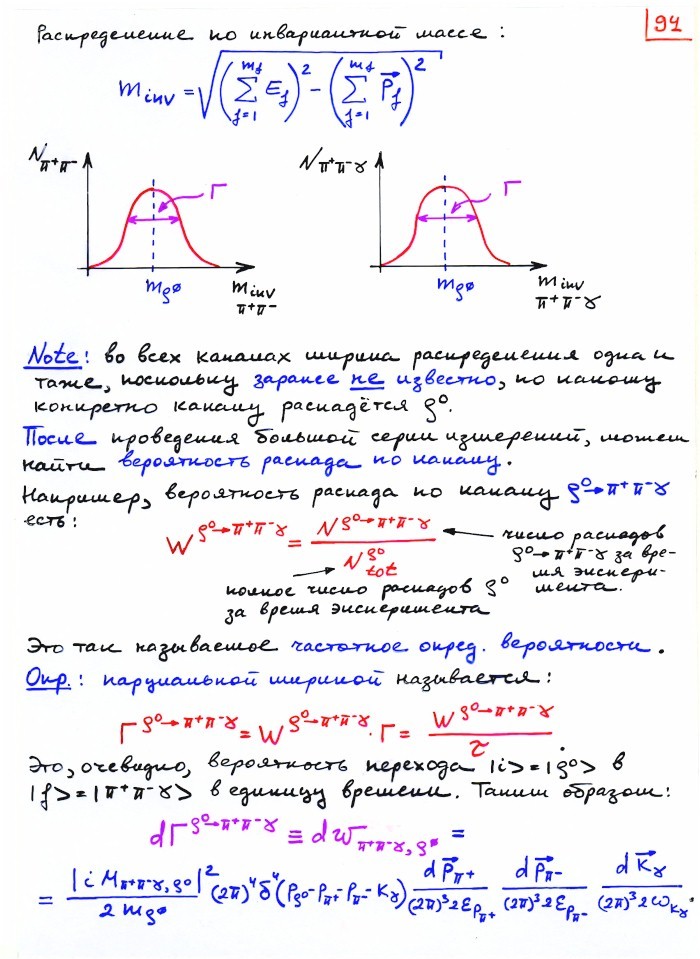 94
Распределение по инвариантной массе:
m_inv = √((∑_{f=1}^{m_f} E_f)² − (∑_{f=1}^{m_f} P⃗_f)²)
N_{π⁺π⁻} Γ m_{ρ⁰} m_inv π⁺π⁻
N_{π⁺π⁻γ} Γ m_{ρ⁰} m_inv π⁺π⁻γ
Note: во всех каналах ширина распределения одна и
таже, поскольку заранее не известно, по какому
конкретно каналу распадётся ρ⁰.
После проведения большой серии измерений, можем
найти вероятность распада по каналу.
Например, вероятность распада по каналу ρ⁰→π⁺π⁻γ
есть:
W^{ρ⁰→π⁺π⁻γ} = N^{ρ⁰→π⁺π⁻γ} / N^{ρ⁰}_{tot}
число распадов
ρ⁰→π⁺π⁻γ за вре-
мя экспери-
мента.
полное число распадов ρ⁰
за время эксперимента
Это так называемое частотное опред. вероятности.
Опр.: парциальной шириной называется:
Γ^{ρ⁰→π⁺π⁻γ} = W^{ρ⁰→π⁺π⁻γ} · Γ = W^{ρ⁰→π⁺π⁻γ} / τ
Это, очевидно, вероятность перехода |i> = |ρ⁰> в
|f> = |π⁺π⁻γ> в единицу времени. Таким образом:
dΓ^{ρ⁰→π⁺π⁻γ} ≡ dw_{π⁺π⁻γ, ρ⁰} =
= |i M_{π⁺π⁻γ, ρ⁰}|² / 2m_{ρ⁰} (2π)⁴ δ⁴(P_{ρ⁰} − P_{π⁺} − P_{π⁻} − K_γ) dP⃗_{π⁺} / (2π)³ 2ε_{P_{π⁺}} dP⃗_{π⁻} / (2π)³ 2ε_{P_{π⁻}} dK⃗_γ / (2π)³ 2ω_{K_γ}.